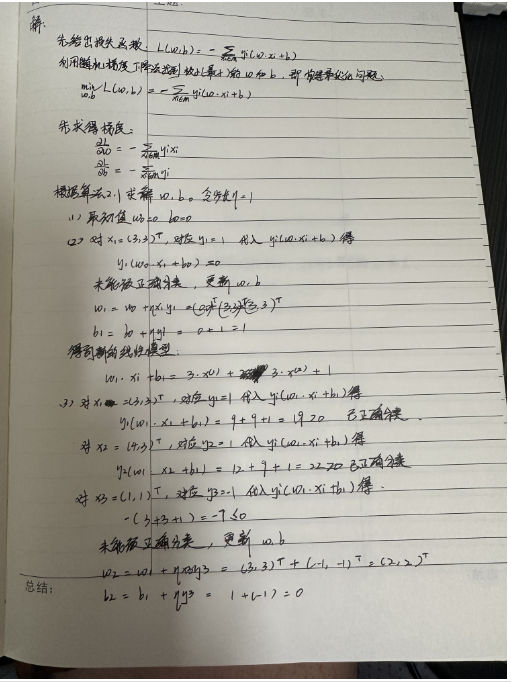 解:
先给出损失函数: L(w,b) = - Σ_{xi∈M} yi(w·xi+b)
利用随机梯度下降法找到最小的w和b, 即求最优化问题:
min_{w,b} L(w,b) = - Σ_{xi∈M} yi(w·xi+b)
先求得梯度:
∂L/∂w = - Σ_{xi∈M} yixi
∂L/∂b = - Σ_{xi∈M} yi
根据算法2.1求解w.b。令步长η=1
(1) 取初值 w0=0 b0=0
(2) 对 x1=(3,3)ᵀ, 对应y1=1 代入 yi(w·xi+b)得
y1(w0·x1+b0)=0
未能被正确分类, 更新w.b
w1 = w0+ηx1y1 =(0,0)ᵀ+(3,3)ᵀ=(3,3)ᵀ
b1 = b0+ηy1 = 0+1=1
得到新的线性模型:
w1·xi+b1 = 3·x⁽¹⁾ + 3·x⁽²⁾ + 1
(3) 对 x1 =(3,3)ᵀ, 对应y1=1代入yi(w1·xi+b1)得
y1(w1·x1+b1) = 9+9+1 = 19≥0 已正确分类.
对 x2 = (4,3)ᵀ, 对应y2=1 代入 yi(w1·xi+b1)得
y2(w1·x2+b1) = 12+9+1 = 22≥0 已正确分类
对 x3=(1,1)ᵀ, 对应y3=-1 代入yi(w1·xi+b1)得.
-(3+3+1) = -7≤0
未能被正确分类, 更新w.b
w2 = w1+ηx3y3 = (3,3)ᵀ+(-1,-1)ᵀ=(2,2)ᵀ
总结:
b2 = b1+ηy3 = 1+(-1)=0